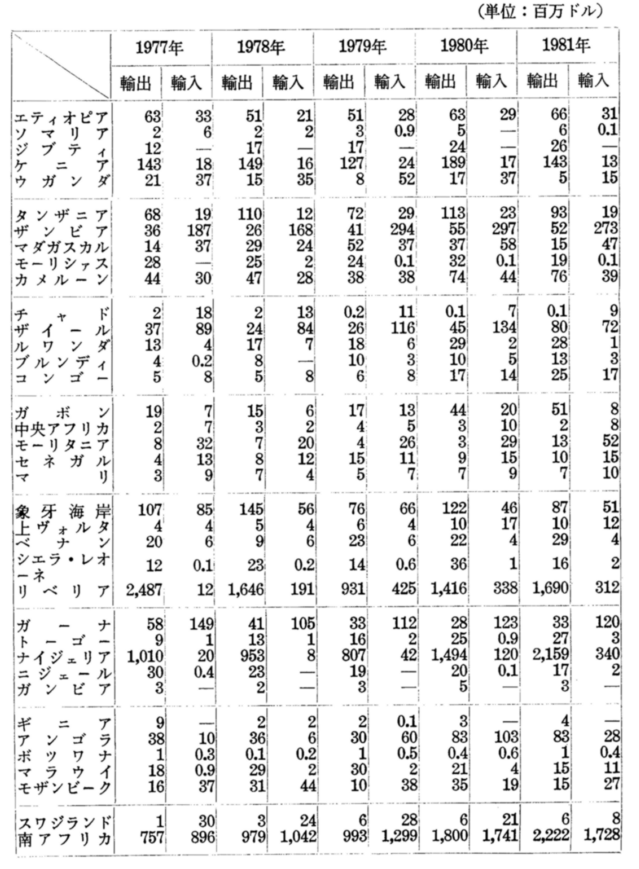 (単位：百万ドル)
1977年 1978年 1979年 1980年 1981年
輸出 輸入 輸出 輸入 輸出 輸入 輸出 輸入 輸出 輸入
エティオピア 63 33 51 21 51 28 63 29 66 31
ソマリア 2 6 2 2 3 0.9 5 — 6 0.1
ジブティ 12 — 17 — 17 — 24 — 26 —
ケニア 143 18 149 16 127 24 189 17 143 13
ウガンダ 21 37 15 35 8 52 17 37 5 15
タンザニア 68 19 110 12 72 29 113 23 93 19
ザンビア 36 187 26 168 41 294 55 297 52 273
マダガスカル 14 37 29 24 52 37 37 58 15 47
モーリシァス 28 — 25 2 24 0.1 32 0.1 19 0.1
カメルーン 44 30 47 28 38 38 74 44 76 39
チャド 2 18 2 13 0.2 11 0.1 7 0.1 9
ザイール 37 89 24 84 26 116 45 134 80 72
ルワンダ 13 4 17 7 18 6 29 2 28 1
ブルンディ 4 0.2 8 — 10 3 10 5 13 3
コンゴー 5 8 5 8 6 8 17 14 25 17
ガボン 19 7 15 6 17 13 44 20 51 8
中央アフリカ 2 7 3 2 4 5 3 10 2 8
モーリタニア 8 32 7 20 4 26 3 29 13 52
セネガル 4 13 8 12 15 11 9 15 10 15
マリ 3 9 7 4 5 7 7 9 7 10
象牙海岸 107 85 145 56 76 66 122 46 87 51
上ヴォルタ 4 4 5 4 6 4 10 17 10 12
ベナン 20 6 9 6 23 6 22 4 29 4
シエラ・レオ
ーネ 12 0.1 23 0.2 14 0.6 36 1 16 2
リベリア 2,487 12 1,646 191 931 425 1,416 338 1,690 312
ガーナ 58 149 41 105 33 112 28 123 33 120
トーゴー 9 1 13 1 16 2 25 0.9 27 3
ナイジェリア 1,010 20 953 8 807 42 1,494 120 2,159 340
ニジェール 30 0.4 23 — 19 — 20 0.1 17 2
ガンビア 3 — 2 — 3 — 5 — 3 —
ギニア 9 — 2 2 2 0.1 3 — 4 —
アンゴラ 38 10 36 6 30 60 83 103 83 28
ボツワナ 1 0.3 0.1 0.2 1 0.5 0.4 0.6 1 0.4
マラウイ 18 0.9 29 2 30 2 21 4 15 11
モザンビーク 16 37 31 44 10 38 35 19 15 27
スワジランド 1 30 3 24 6 28 6 21 6 8
南アフリカ 757 896 979 1,042 993 1,299 1,800 1,741 2,222 1,728